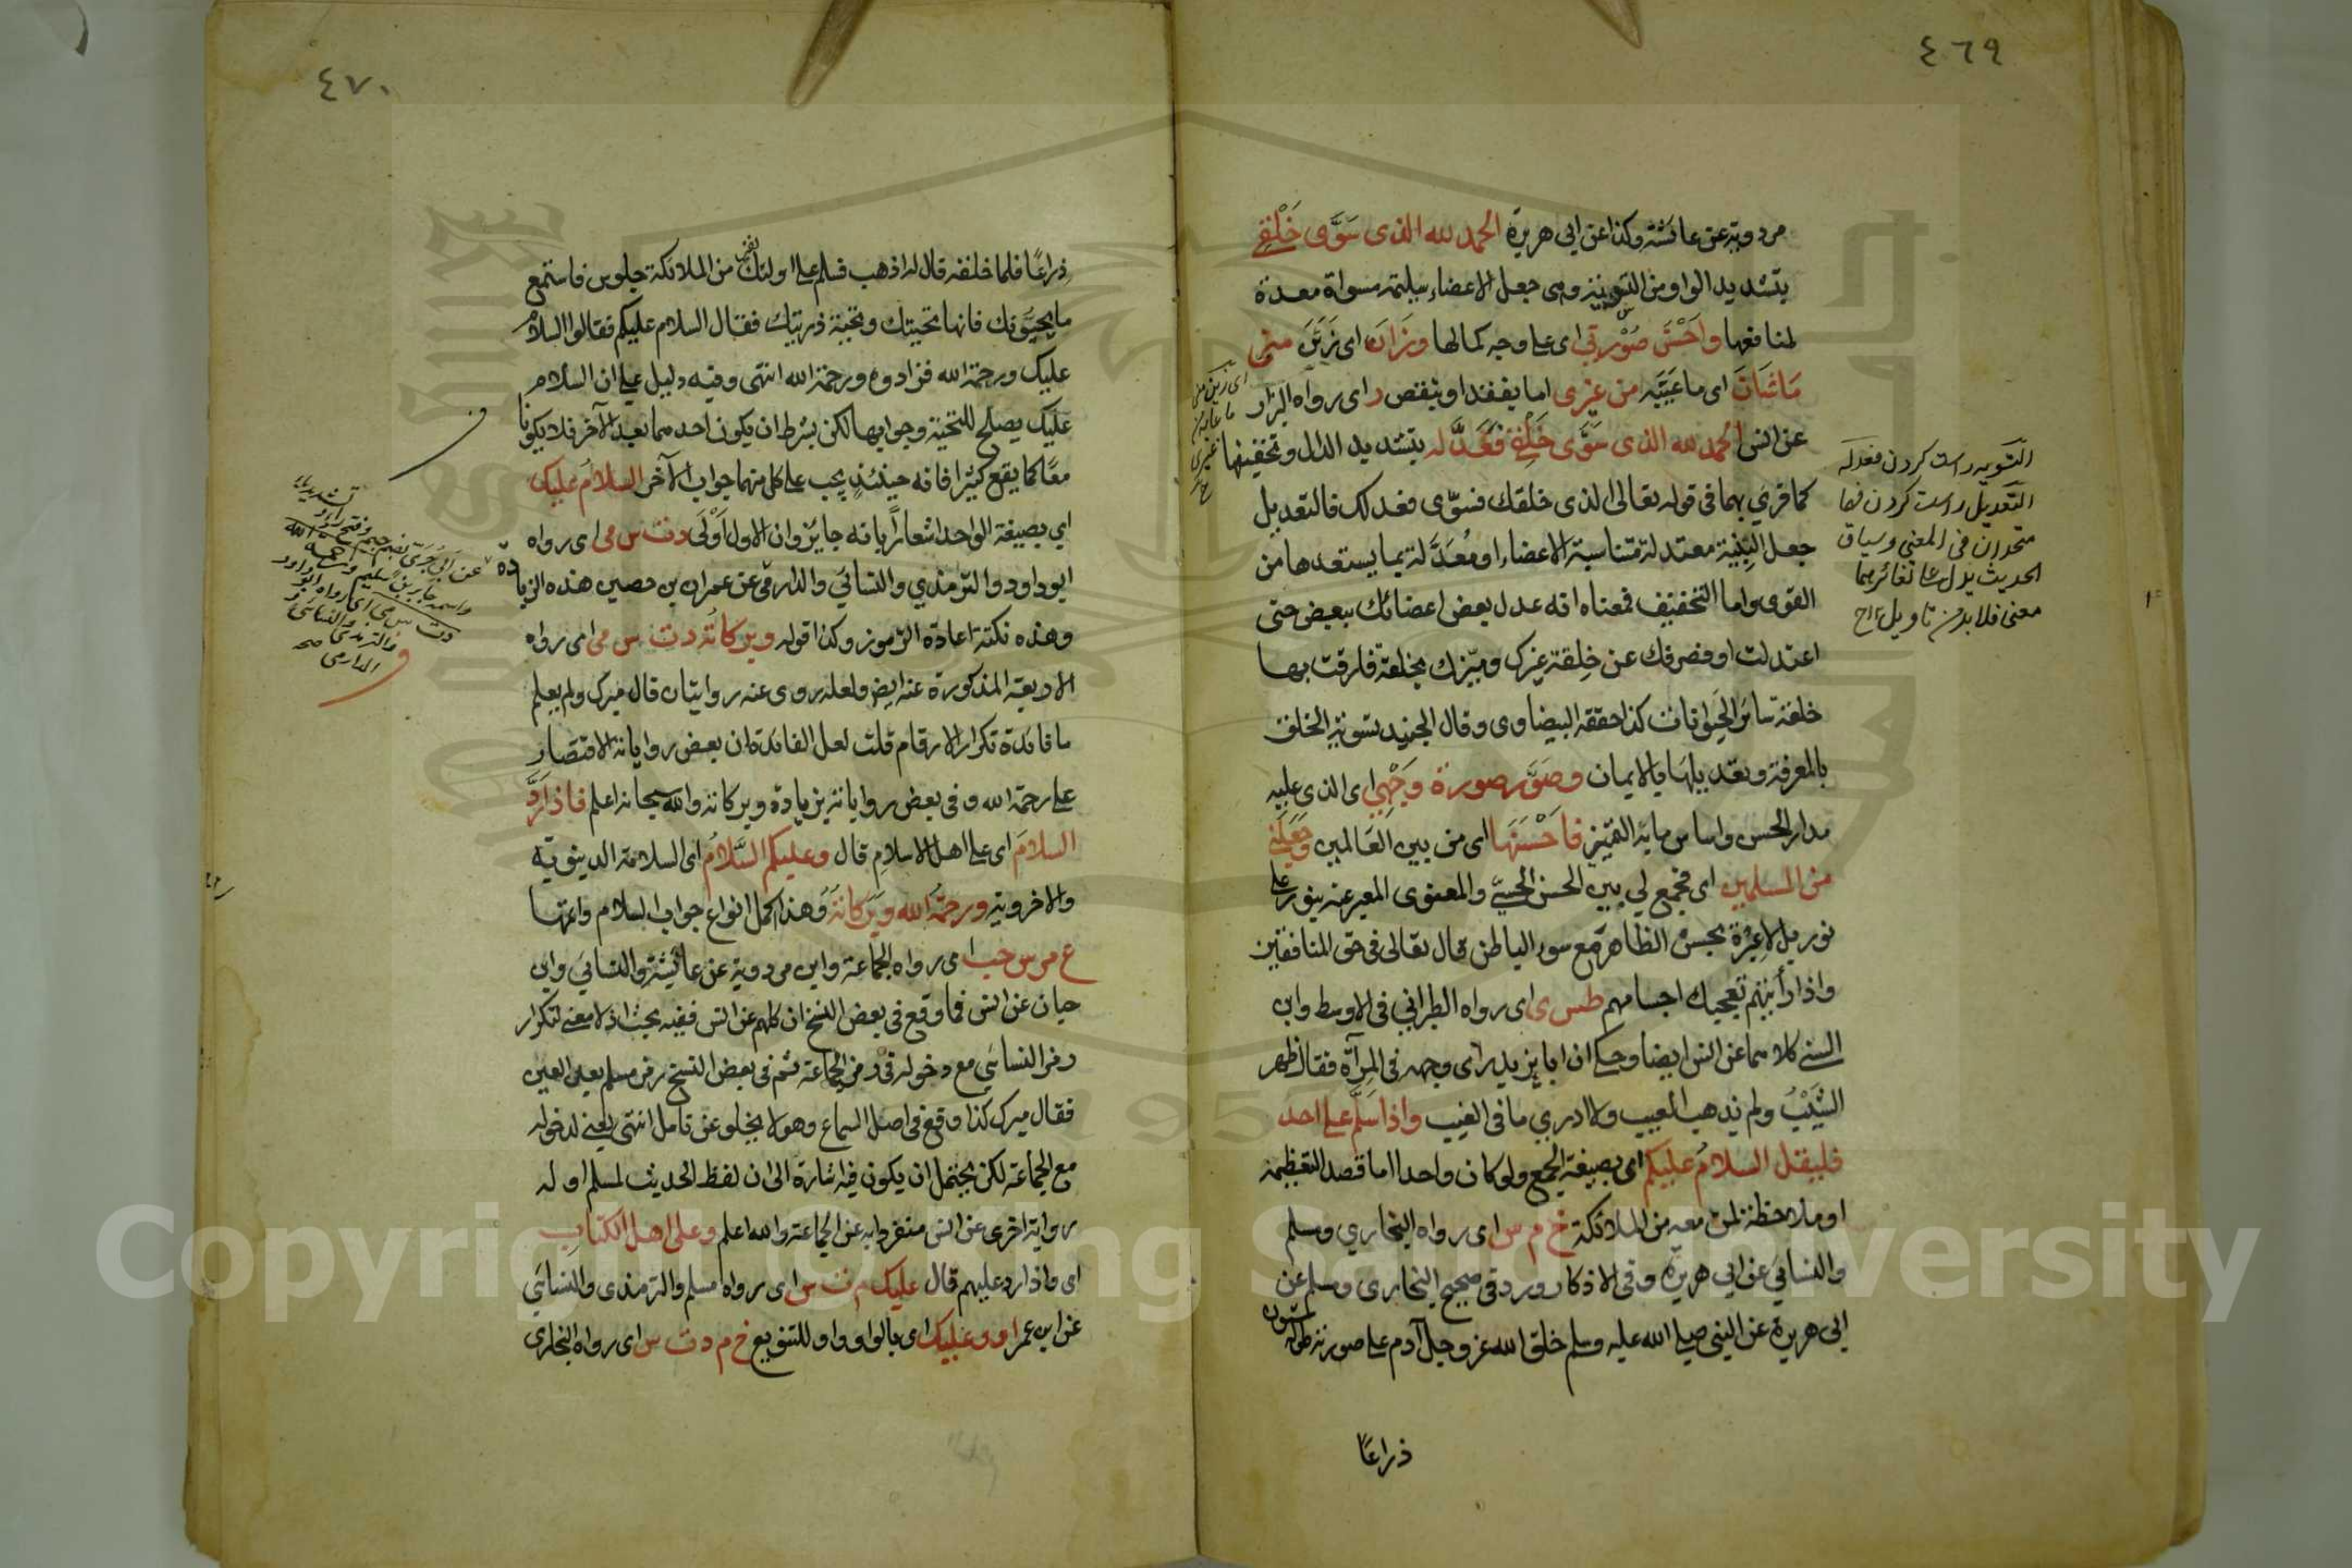 ٤٦٩
مردوية عن عائشة وكذا عن ابي هريرة الحمد لله الذى سَوَّى خَلْقِي
بتشديد الواو من التسوية وهى جعل الاعضاء سليمة مسواة معدة
لمنافعها واَحْسَنَ صُوْرَتِي اى على وجه كمالها وزَانَ اى زَيَّنَ منى
مَاشَانَ اى ما عَيَّبَه من غيرى اما بفقد او بنقص ر اى رواه البزار
عن انس الحمد لله الذى سَوَّى خَلْقِي فعَدَّله بتشديد الدال وتخفيفها
كما قرئ بهما فى قوله تعالى الذى خلقك فسوّى فعدلك فالتعديل
جعل البِنْية معتدلة متناسبة الاعضاء او مُعَدَّلة بما يستعدها من
القوى واما التخفيف فمعناه انه عدل بعض اعضائك ببعض حتى
اعتدلت او فصرفك عن خِلقة غيرك وميّزك بخلقة فارقت بها
خلقة سائر الحيوانات كذا حققه البيضاوى وقال الجنيد تسوية الخلق
بالمعرفة وتعديلها بالايمان وصَوَّر صورة وَجْهِي اى الذى عليه
مدار الحسن واساس مابه التميز فاَحْسَنَهَا اى من بين العَالمين وجَعَلَنِي
من المسلمين اى فجمع لي بين الحسن الحسيّ والمعنوى المعبر عنه بنور على
نور بل لاعِبْرة بحسن الظاهر مع سوء الباطن قال تعالى فى حق المنافقين
واذا رأيتهم تعجبك اجسامهم طس ى اى رواه الطبراني فى الاوسط وابن
السنى كلاهما عن انس ايضا وحكى ان ابا يزيد رأى وجهه فى المِرآة فقال ظهر
الشَّيْبُ ولم يذهب العيب ولا ادري ما فى الغيب واذا سَلَّم على احد
فليقل السلامُ عليكم اى بصيغة الجمع ولو كان واحدا اما قصد التعظيمه
او ملاحظة لمن معه من الملائكة خ م س اى رواه البخاري ومسلم
والنسائي عن ابي هريرة وفى الاذكار ورد فى صحيح البخارى ومسلم عن
ابى هريرة عن النبي صلى الله عليه وسلم خلق الله عز وجل آدم على صورته طوله ستون
ذراعًا
اى زين منى
ما عابه من
غيرى
التسويه راست كردن فعدله
التعديل راست كردن فهما
متحدان فى المعنى وسياق
الحديث يدل على تغائرهما
معنى فلا بد من تاويل
٤٧٠
ذراعًا فلما خلقه قال له اذهب فسلم على اولئك نفر من الملائكة جلوس فاستمع
ما يحيّونك فانها تحيتك وتحية ذريتك فقال السلام عليكم فقالوا السلام
عليك ورحمة الله فزادوه ورحمة الله انتهى وفيه دليل على ان السلام
عليك يصلح للتحية وجوابها لكن بشرط ان يكون احدهما بعد الآخر فلا يكونا
معًا كما يقع كثيرا فانه حينئذٍ يجب على كل منهما جواب الآخر السلامُ عليك
اي بصيغة الواحد اشعارًا بانه جايز وان الاول اَوْلَى د ت س مى اى رواه
ابو داود والترمذي والنسائي والدارمى عن عمران بن حصين هذه الزيادة
وهذه نكتة اعادة الرموز وكذا قوله وبركاتُه د ت س مى اى رواه
الاربعة المذكورة عنه ايض ولعله روى عنه روايتان قال ميرك ولم يعلم
ما فائدة تكرار الارقام قلت لعل الفائدة ان بعض رواياته الاقتصار
على رحمة الله وفى بعض رواياته بزيادة وبركاته والله سبحانه اعلم فاذا رَدَّ
السلامَ اى على اهل الاسلامِ قال وعليكم السَّلامُ اى السلامة الدينوية
والاخروية ورحمة الله وبَرَكاتُهُ وهذا اكمل انواع جواب السلام واعمها
ع مر س حب اى رواه الجماعة وابن مردوية عن عائشة والنسائي وابن
حبان عن انس فما وقع فى بعض النسخ ان كلهم عن انس ففيه بحث اذ لا معنى لتكرار
رمز النسائي مع دخوله فى رمز الجماعة ثم فى بعض النسخ رمز مسلم بعد العين
فقال ميرك كذا وقع فى اصل السماع وهو لا يخلو عن تامل انتهى يعنى لدخوله
مع الجماعة لكن يحتمل ان يكون فيه اشارة الى ان لفظ الحديث لمسلم او له
رواية اخرى عن انس منفردا به عن الجماعة والله اعلم وعلى اهل الكتابِ
اى واذا رد عليهم قال عليك م ت س اى رواه مسلم والترمذى والنسائي
عن ابن عمر او وعليك اى بالواو واو للتنويع خ م د ت س اى رواه البخارى
عن ابى جُرَىّ بضم جيم وفتح راء و
تشديد ياء
واسمه جابر بن سليم ورحمة الله
د ت س مى اى رواه ابو داود
والترمذى والنسائى و
الدارمى صح
Copyright © King Saud University
1957